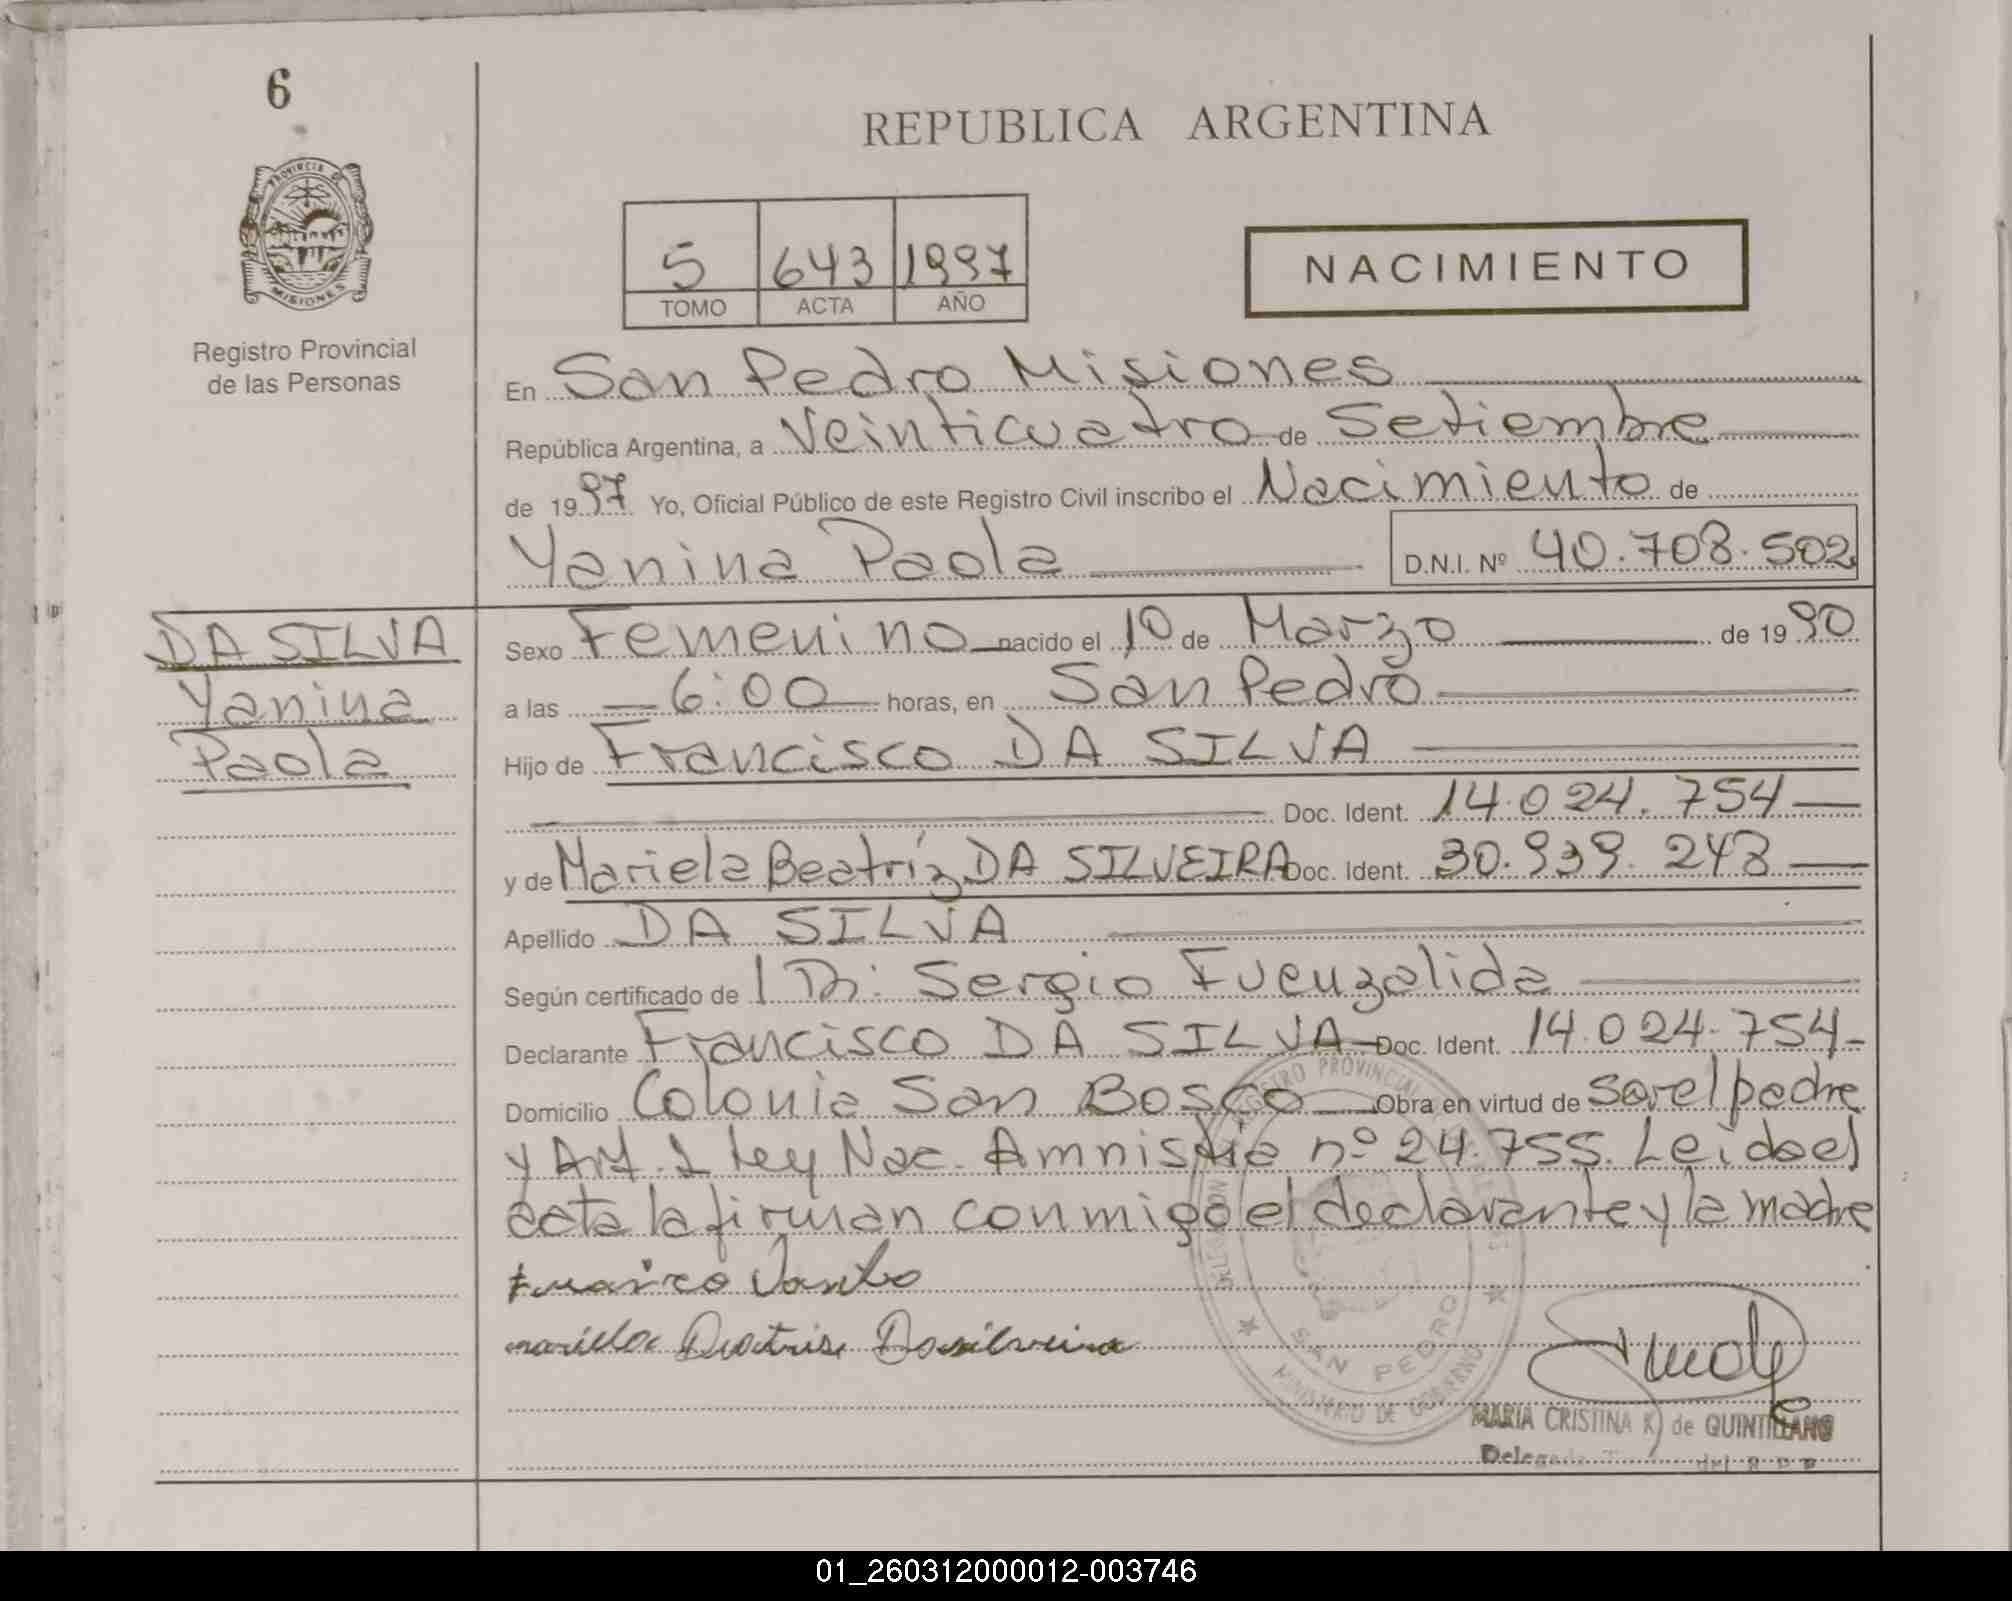 6
REPUBLICA ARGENTINA
PROVINCIA DE
MISIONES
Registro Provincial
de las Personas
5 643 1997
TOMO ACTA AÑO
NACIMIENTO
En San Pedro Misiones
República Argentina, a Veinticuatro de Setiembre
de 1997 Yo, Oficial Público de este Registro Civil inscribo el Nacimiento de
Yanina Paola D.N.I. Nº 40.708.502
DA SILVA
Yanina
Paola
Sexo Femenino nacido el 10 de Marzo de 1990
a las 6:00 horas, en San Pedro
Hijo de Francisco DA SILVA
Doc. Ident. 14.024.754
y de Mariela Beatríz DA SILVEIRA Doc. Ident. 30.939.248
Apellido DA SILVA
Según certificado de Dr. Sergio Fuenzalida
Declarante Francisco DA SILVA Doc. Ident. 14.024.754
Domicilio Colonia San Bosco Obra en virtud de ser el padre
y Art. 1 Ley Nac. Amnistía nº 24.755. Leída el
acta la firman conmigo el declarante y la madre
REGISTRO PROVINCIAL
SAN PEDRO
MINISTERIO DE GOBIERNO
MARIA CRISTINA K) de QUINTILLANO
01_260312000012-003746